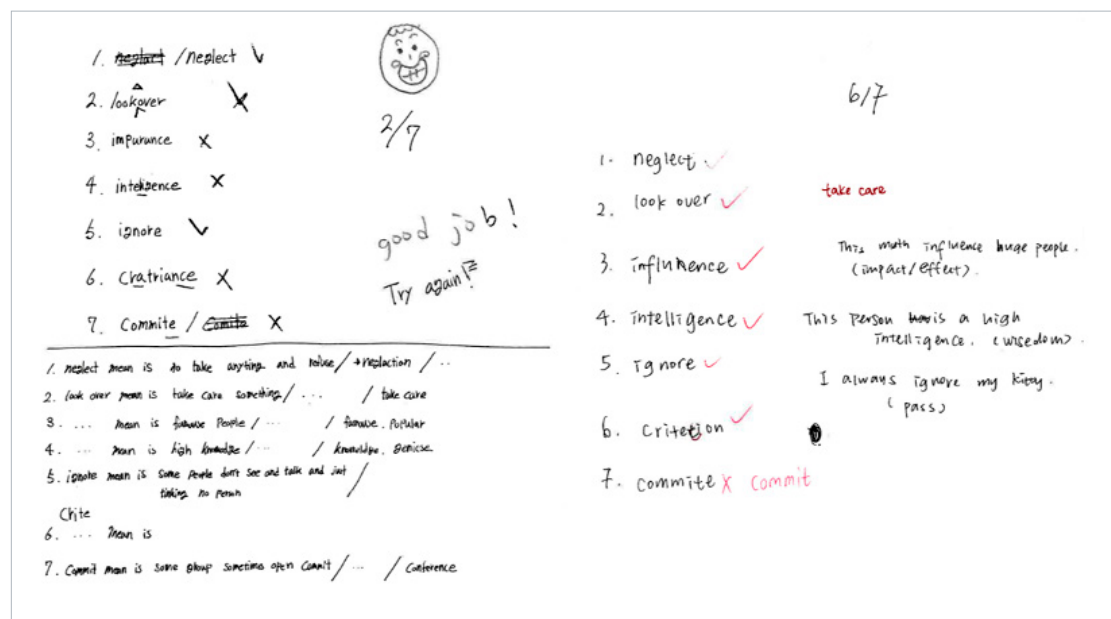 1. neglact /neglect ✓
2. lookover X
3. impurance X
4. inteligence X
5. ignore ✓
6. Cratriance X
7. Commite / Comite X
2/7
good job!
Try again!
1. neglect mean is do take anyting and reduse / → neglaction / ...
2. look over mean is take care something / ... / take care
3. ... mean is famuse people / ... / famuse. popular
4. ... mean is high knowledge / ... / knowledge. geniuse
5. ignore mean is some people don't see and talk and just /
tinking no person
Crite
6. ... mean is
7. Commit mean is some group sometime open Commit / ... / Conference
6/7
1. neglect ✓
2. look over ✓ take care
3. influence ✓ This math influence huge people.
(impact/effect).
4. intelligence ✓ This person is a high
intelligence. (wisedom).
5. ignore ✓ I always ignore my kitty.
(pass)
6. Criterion ✓
7. commite X commit